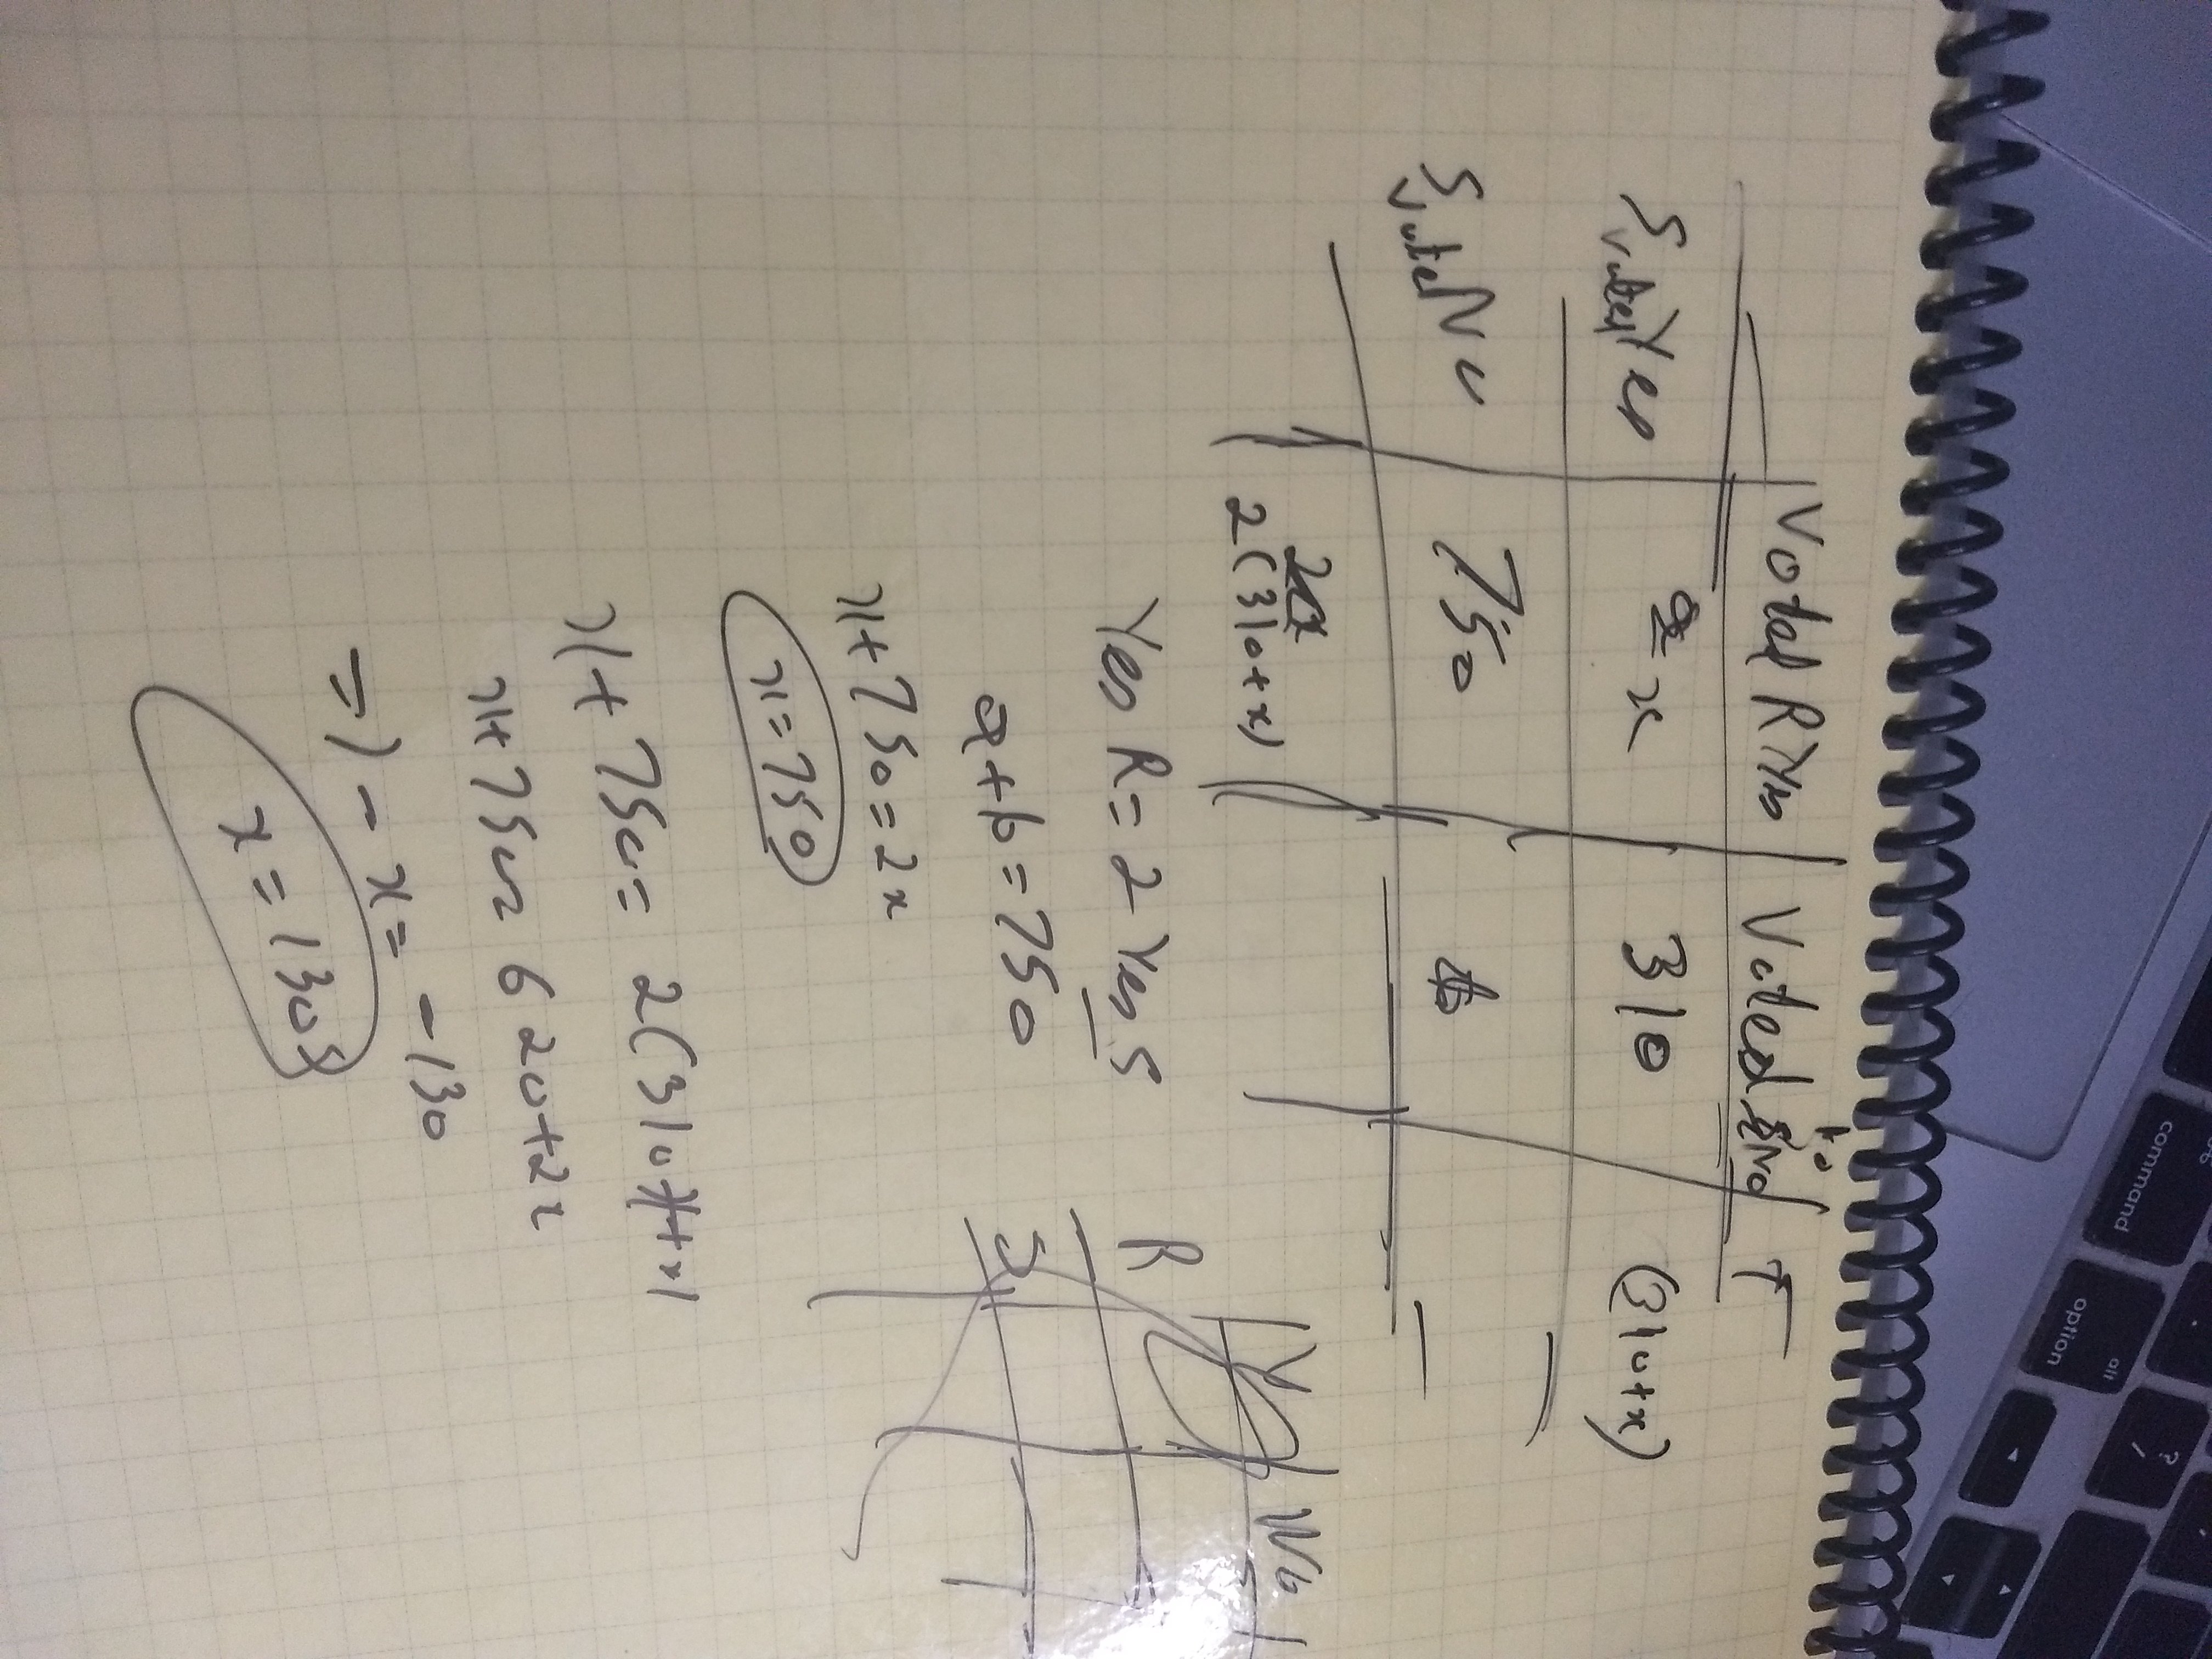 Voted R Yes | Voted R No T
S voted Yes x 310 (310+x)
S voted No 750
2(310+x)
Yes R = 2 Yes S
a+b=750
x+750=2x
x=750
x+750= 2(310+x)
x+750= 620+2x
=) -x= -130
x=130
Y No
R
S
command
option
alt
?
/